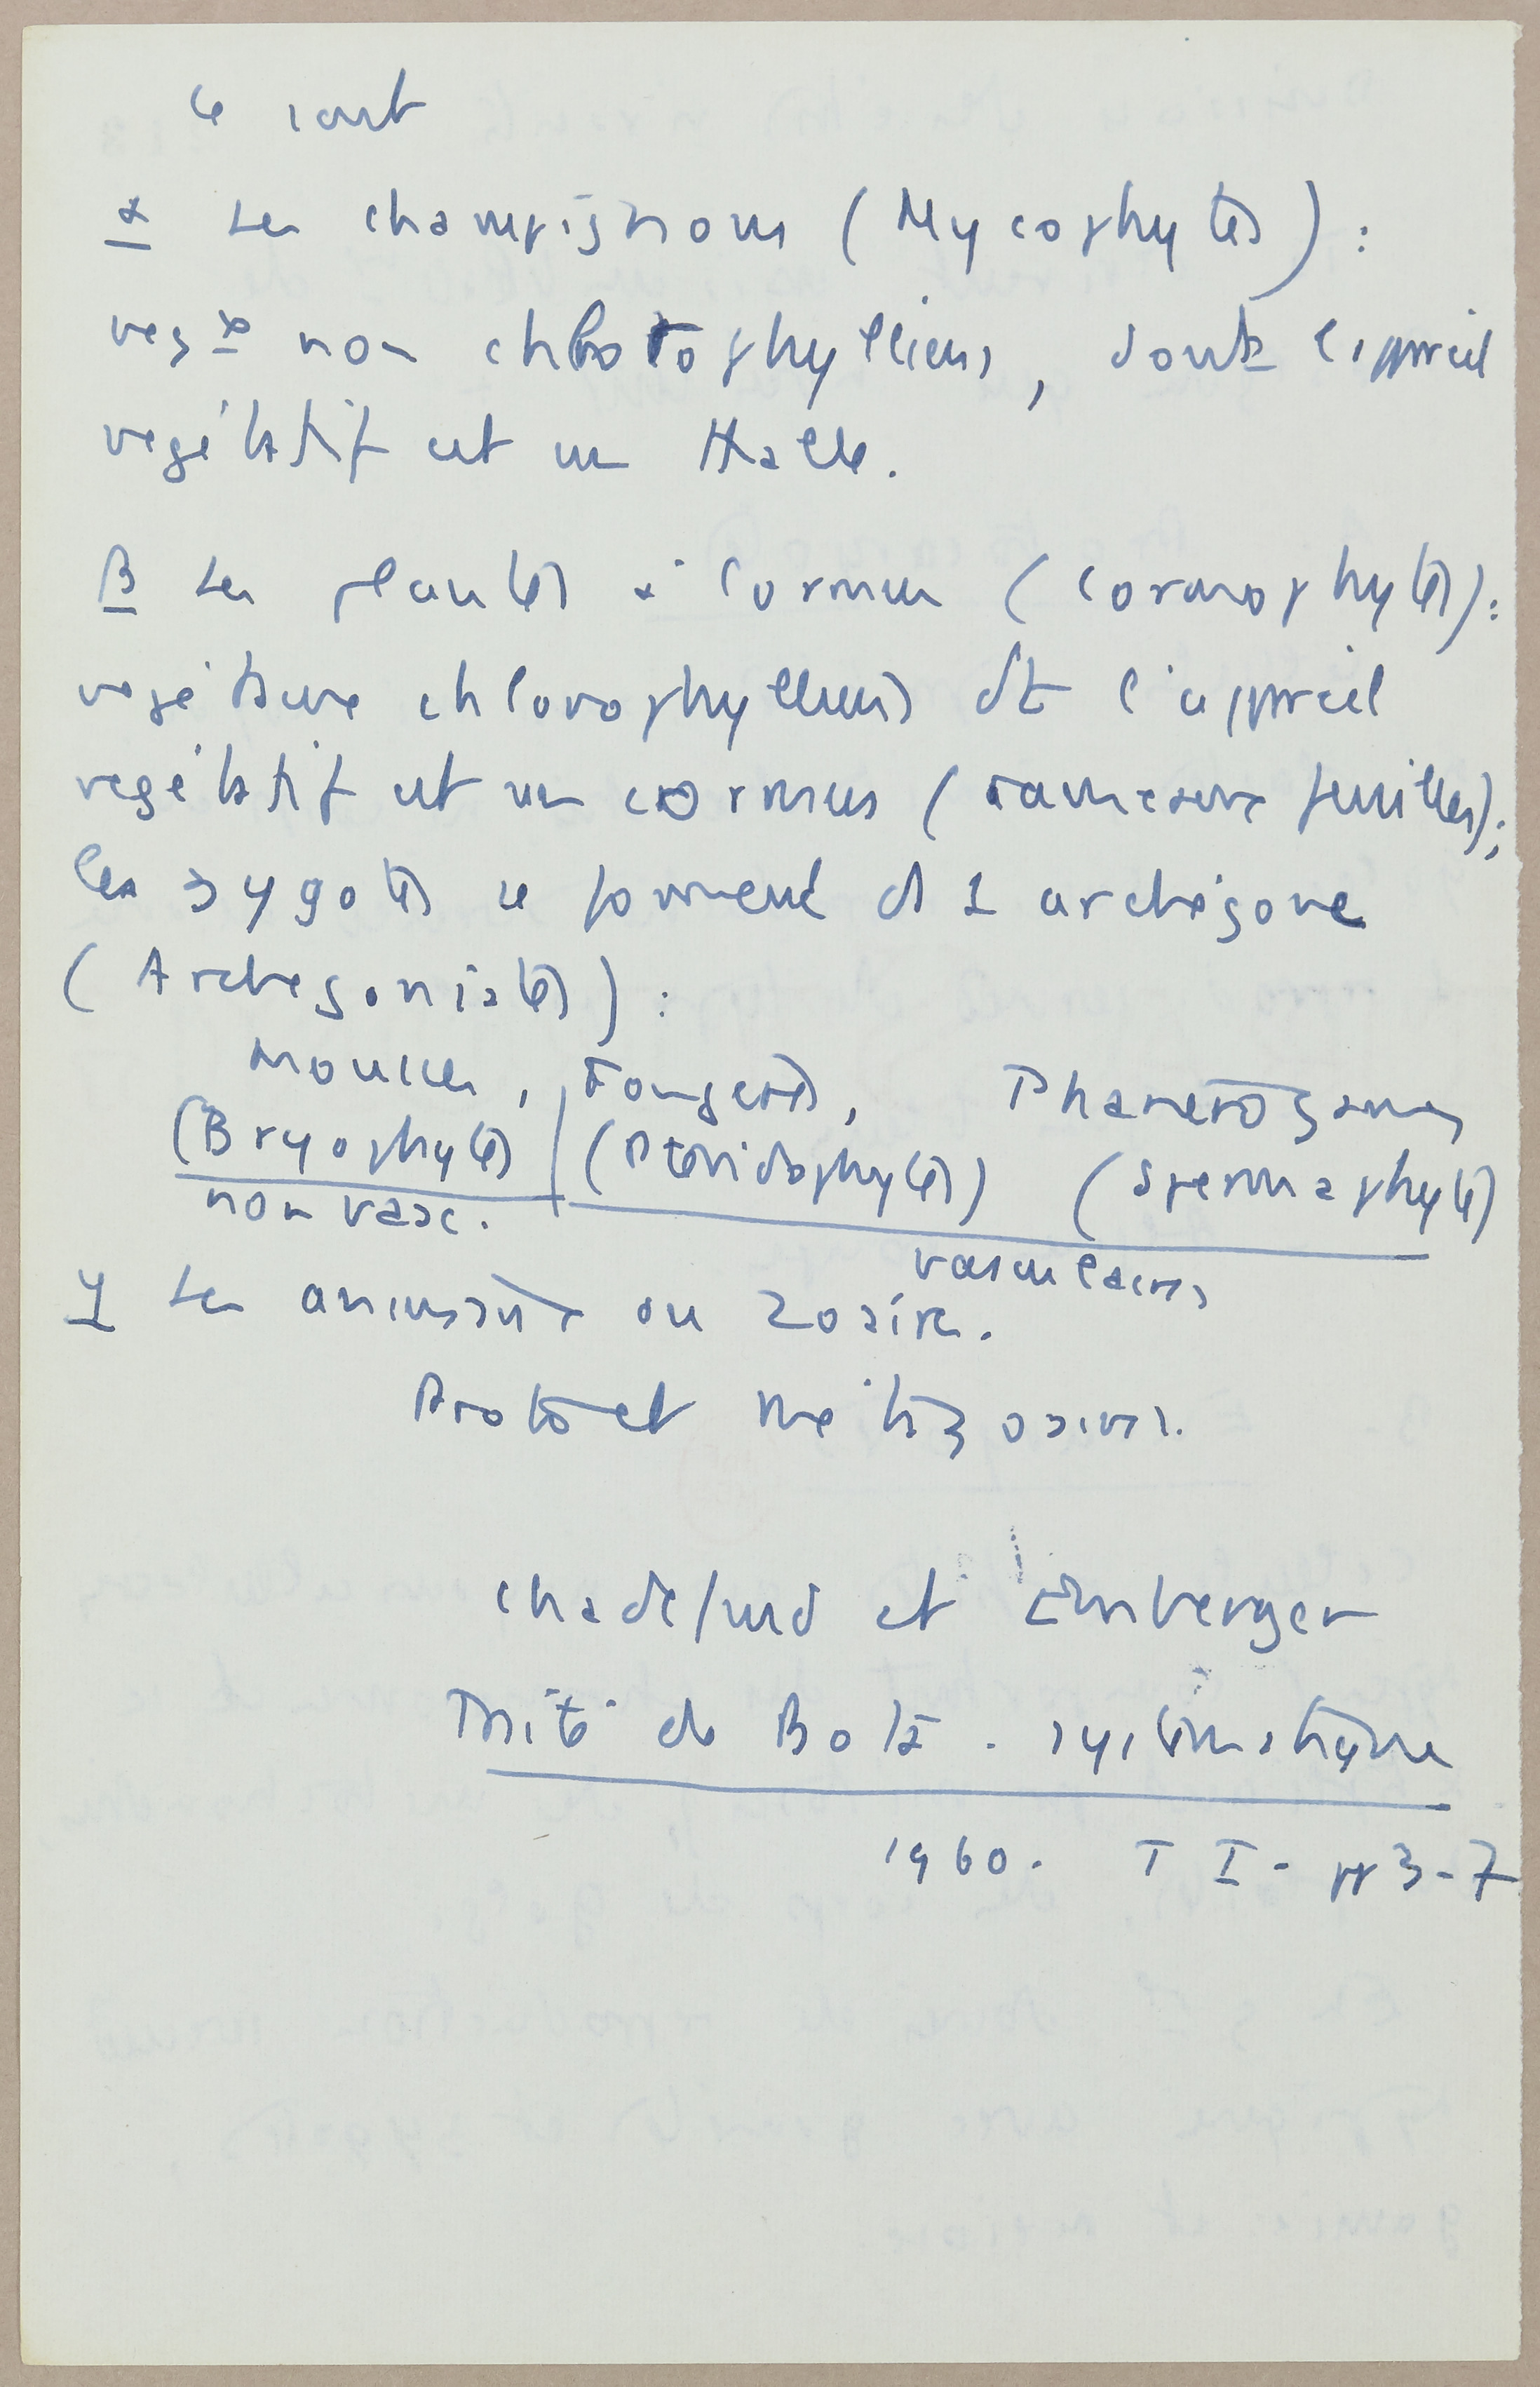 Ce sont
α Les champignons (Mycophytes) :
végx non chlorophylliens, dont l'appareil
végétatif est un thalle.
β Les plantes à cormus (cormophytes) :
végétaux chlorophylliens dt l'appareil
végétatif est un cormus (rameaux feuillés) ;
les zygotes se forment ds 1 archégone
(Archégoniates) :
Mousses, Fougères, Phanérogames
(Bryophytes) (Ptéridophytes) (Spermaphytes)
non vasc.
vasculaires
γ Les animaux ou zoaires.
Proto et Métazoaires.
Chadefaud et Emberger
Traité de Bota. systématique
1960. T I - pp 3-7